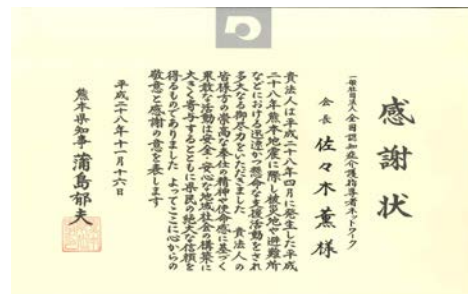 感謝状
一般社団法人全国認知症介護指導者ネットワーク
会長 佐々木薫様
貴法人は平成二十八年四月に発生した平成
二十八年熊本地震に際し被災地や避難所
などにおける迅速かつ懸命な支援活動をされ
多大なる御尽力をいただきました 貴法人の
皆様方の崇高な奉仕の精神や使命感に基づく
果敢な活動は安全・安心な地域社会の構築に
大きく寄与するとともに県民の絶大な信頼を
得るものでありました よってここに心からの
敬意と感謝の意を表します
平成二十八年十一月十六日
熊本県知事 蒲島郁夫